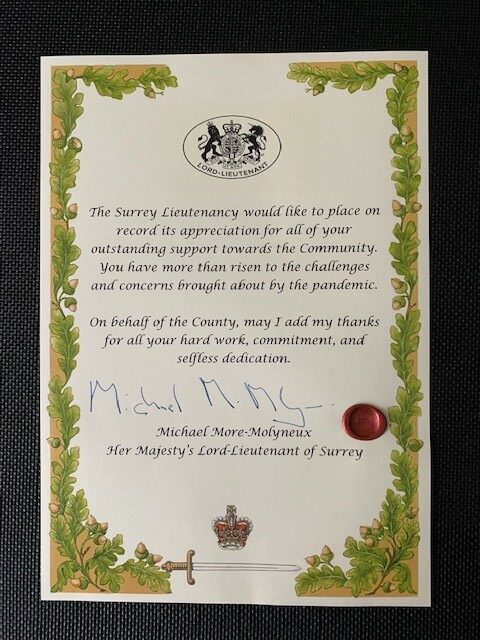 LORD-LIEUTENANT
The Surrey Lieutenancy would like to place on
record its appreciation for all of your
outstanding support towards the Community.
You have more than risen to the challenges
and concerns brought about by the pandemic.
On behalf of the County, may I add my thanks
for all your hard work, commitment, and
selfless dedication.
Michael M. M
Michael More-Molyneux
Her Majesty's Lord-Lieutenant of Surrey